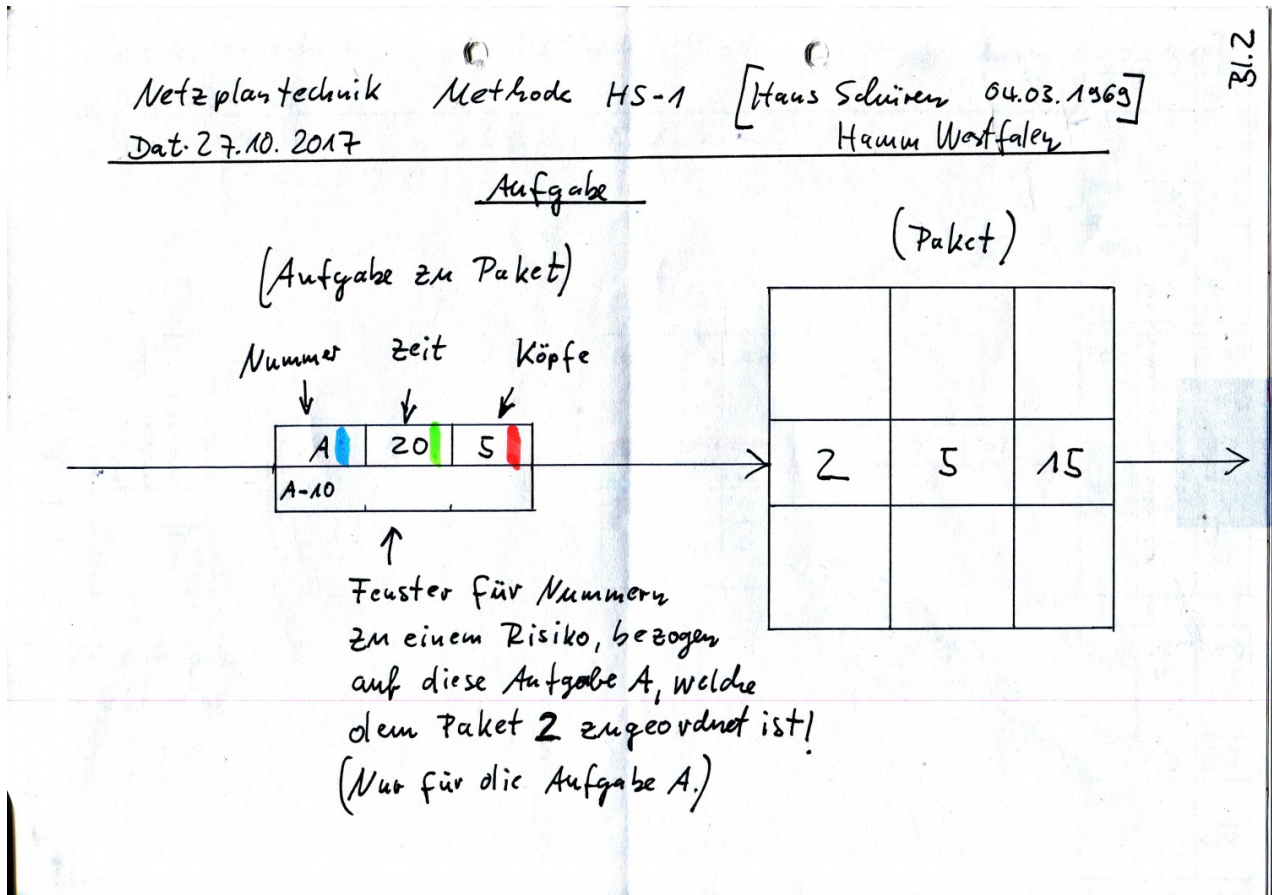 Bl.2
Netzplantechnik Methode HS-1 [Hans Schüren 04.03.1969]
Dat. 27.10.2017 Hamm Westfalen
Aufgabe
(Paket)
(Aufgabe zu Paket)
Nummer Zeit Köpfe
A 20 5
2 5 15
A-10
Fenster für Nummern
zu einem Risiko, bezogen
auf diese Aufgabe A, welche
dem Paket 2 zugeordnet ist!
(Nur für die Aufgabe A.)